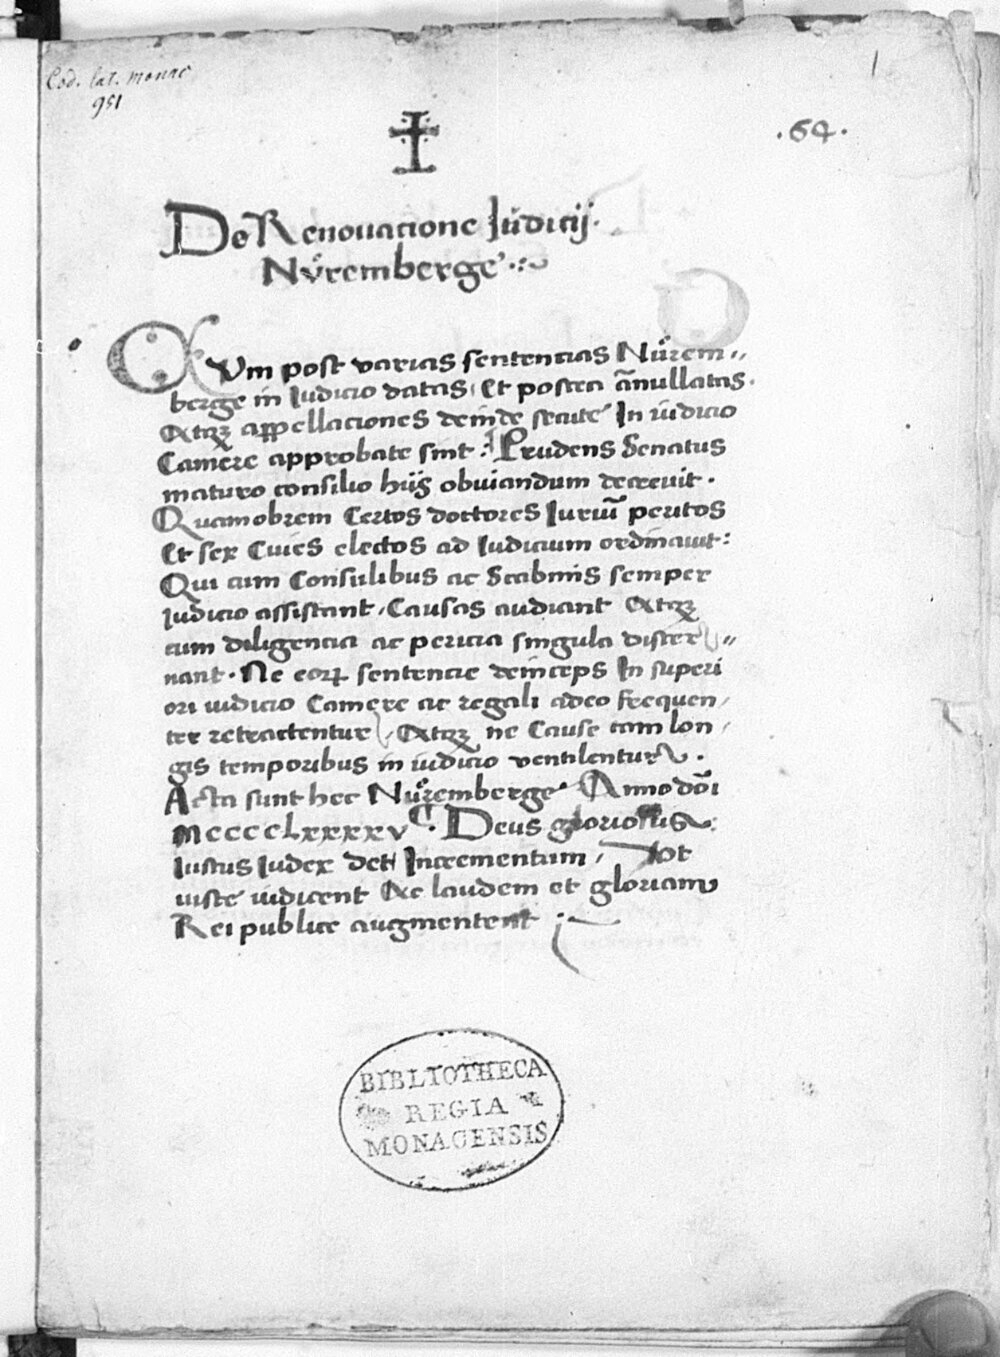 Cod. lat. monac
951
1
.64.
De Renouacione Iudicij.
Nůremberge
Cvm post varias sentencias Nůrem„
berge in Iudicio datas, Et postea ānullatas.
Atqꝫ appellaciones deinde secute In iudicio
Camere approbate sint : Prudens Senatus
maturo consilio hijs obuiandum decreuit.
Quamobrem Certos doctores Iuriū peritos
Et sex Ciues electos ad Iudicium ordinauit:
Qui cum Consulibus ac Scabinis semper
iudicio assistant, Causas audiant Atqꝫ
cum diligencia ac pericia singula discer„
nant. Ne eoꝝ sentencie deinceps In superi
ori iudicio Camere ac regali adeo frequen/
ter retractentur, Atqꝫ ne Cause tam lon/
gis temporibus in iudicio ventilentur.
Acta sunt hec Nůremberge Anno dōi
MCCCCLXXXXV Deus gloriosus:
Iustus Iudex det Incrementum, Vt
iuste iudicent Ac laudem et gloriam
Rei publice augmentent
BIBLIOTHECA
REGIA
MONACENSIS